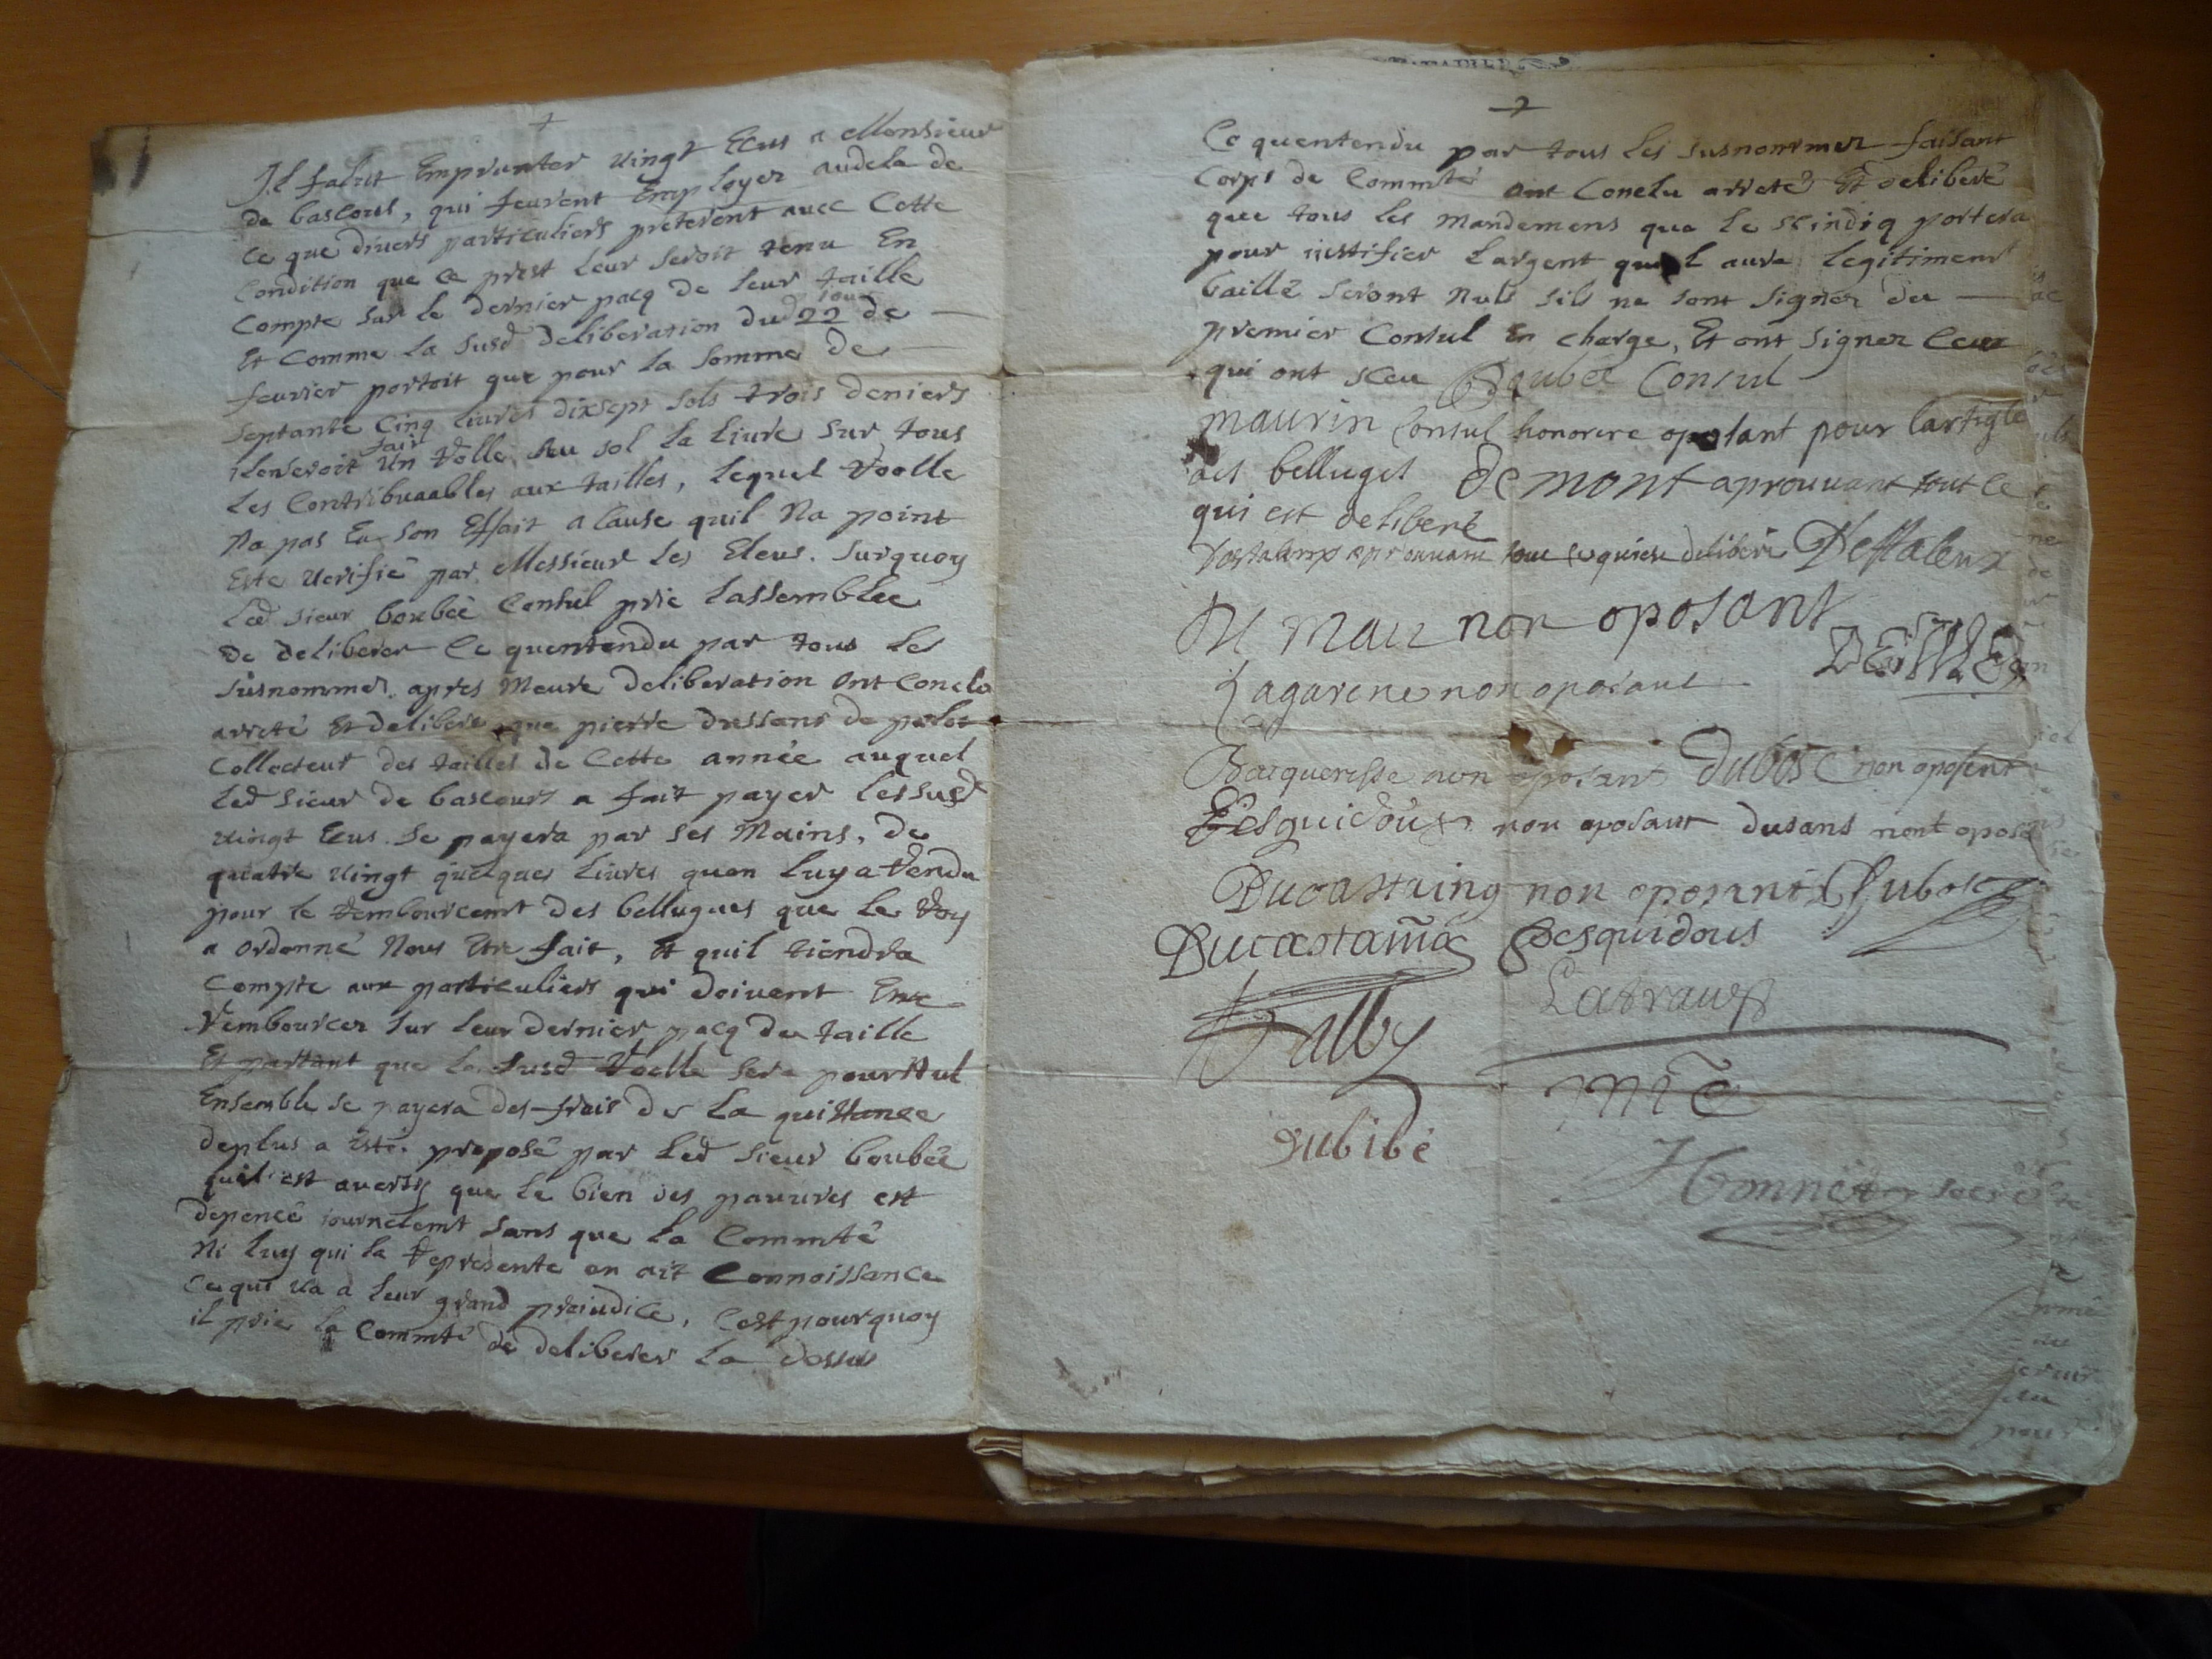 Il falut Emprunter vingt Ecus a Monsieur
de bascous, qui feurent Employer audela de
ce que divers particuliers preterent avec Cette
Condition que ce prest leur seroit tenu En
Compte sur le dernier pacq de leur taille
Et Comme la susd deliberation dud 22 jour de
feurier portoit que pour la somme de
septante Cinq livres dixsept sols trois deniers
il en seroit fair Un rolle au sol la livre sur tous
les Contribuaables aux tailles, lequel roolle
Na pas Eu son Effait a Cause quil Na point
Este verifié par Messieur les Eleus. Surquoy
Led sieur boubée Consul prie lassemblee
de deliberer Ce quentendu par tous les
susnommer apres Meure deliberation ont Conclu
arreté Et deliberé que pierre dussans de
Collecteur des tailles de Cette année auquel
Led sieur de bascous a fait payer les susd
vingt Ecus se payera par ses Mains, de
quatre vingt quelques livres quon luy a rendu
pour le remboursemt des bellugues que le roy
a ordonné Nous Etre fait, Et quil tiendra
Compte aux particuliers qui doivent Etre
rembourcer sur leur dernier pacq de taille
Et partant que la susd roolle sera pour Nul
Ensemble se payera des frais de la quittance
deplus a Esté proposé par Led Sieur boubée
quil est averty que le bien des pauvres est
depencé journelemt sans que la Commté
Ni luy qui la represente en ait Connoissance
ce qui va a leur grand prejudice, Cest pourquoy
il prie la Commté de deliberer la dessus
Ce quentendu par tous les susnommer faisant
Corps de Commté ont Conclu arreté Et deliberé
que tous les Mandemens que le scindiq portera
pour justifier l'argent quil aura legitimemt
baillé seront Nuls sils ne sont signer du
premier Consul En charge, Et ont signer Ceux
qui ont sceu Boubée Consul
maurin Consul honorere oposant pour lartigle
des belluges de mont aprouvant tout ce
qui est deliberé
aprouvant tout ce qui est deliberé
non oposant
Lagarene non oposant
non oposant dubosc non oposent
Desquidoux non oposant dusans nont oposa
Ducastaing non oposant Dubosc
Desquidous
Latraus
dubibé
secre